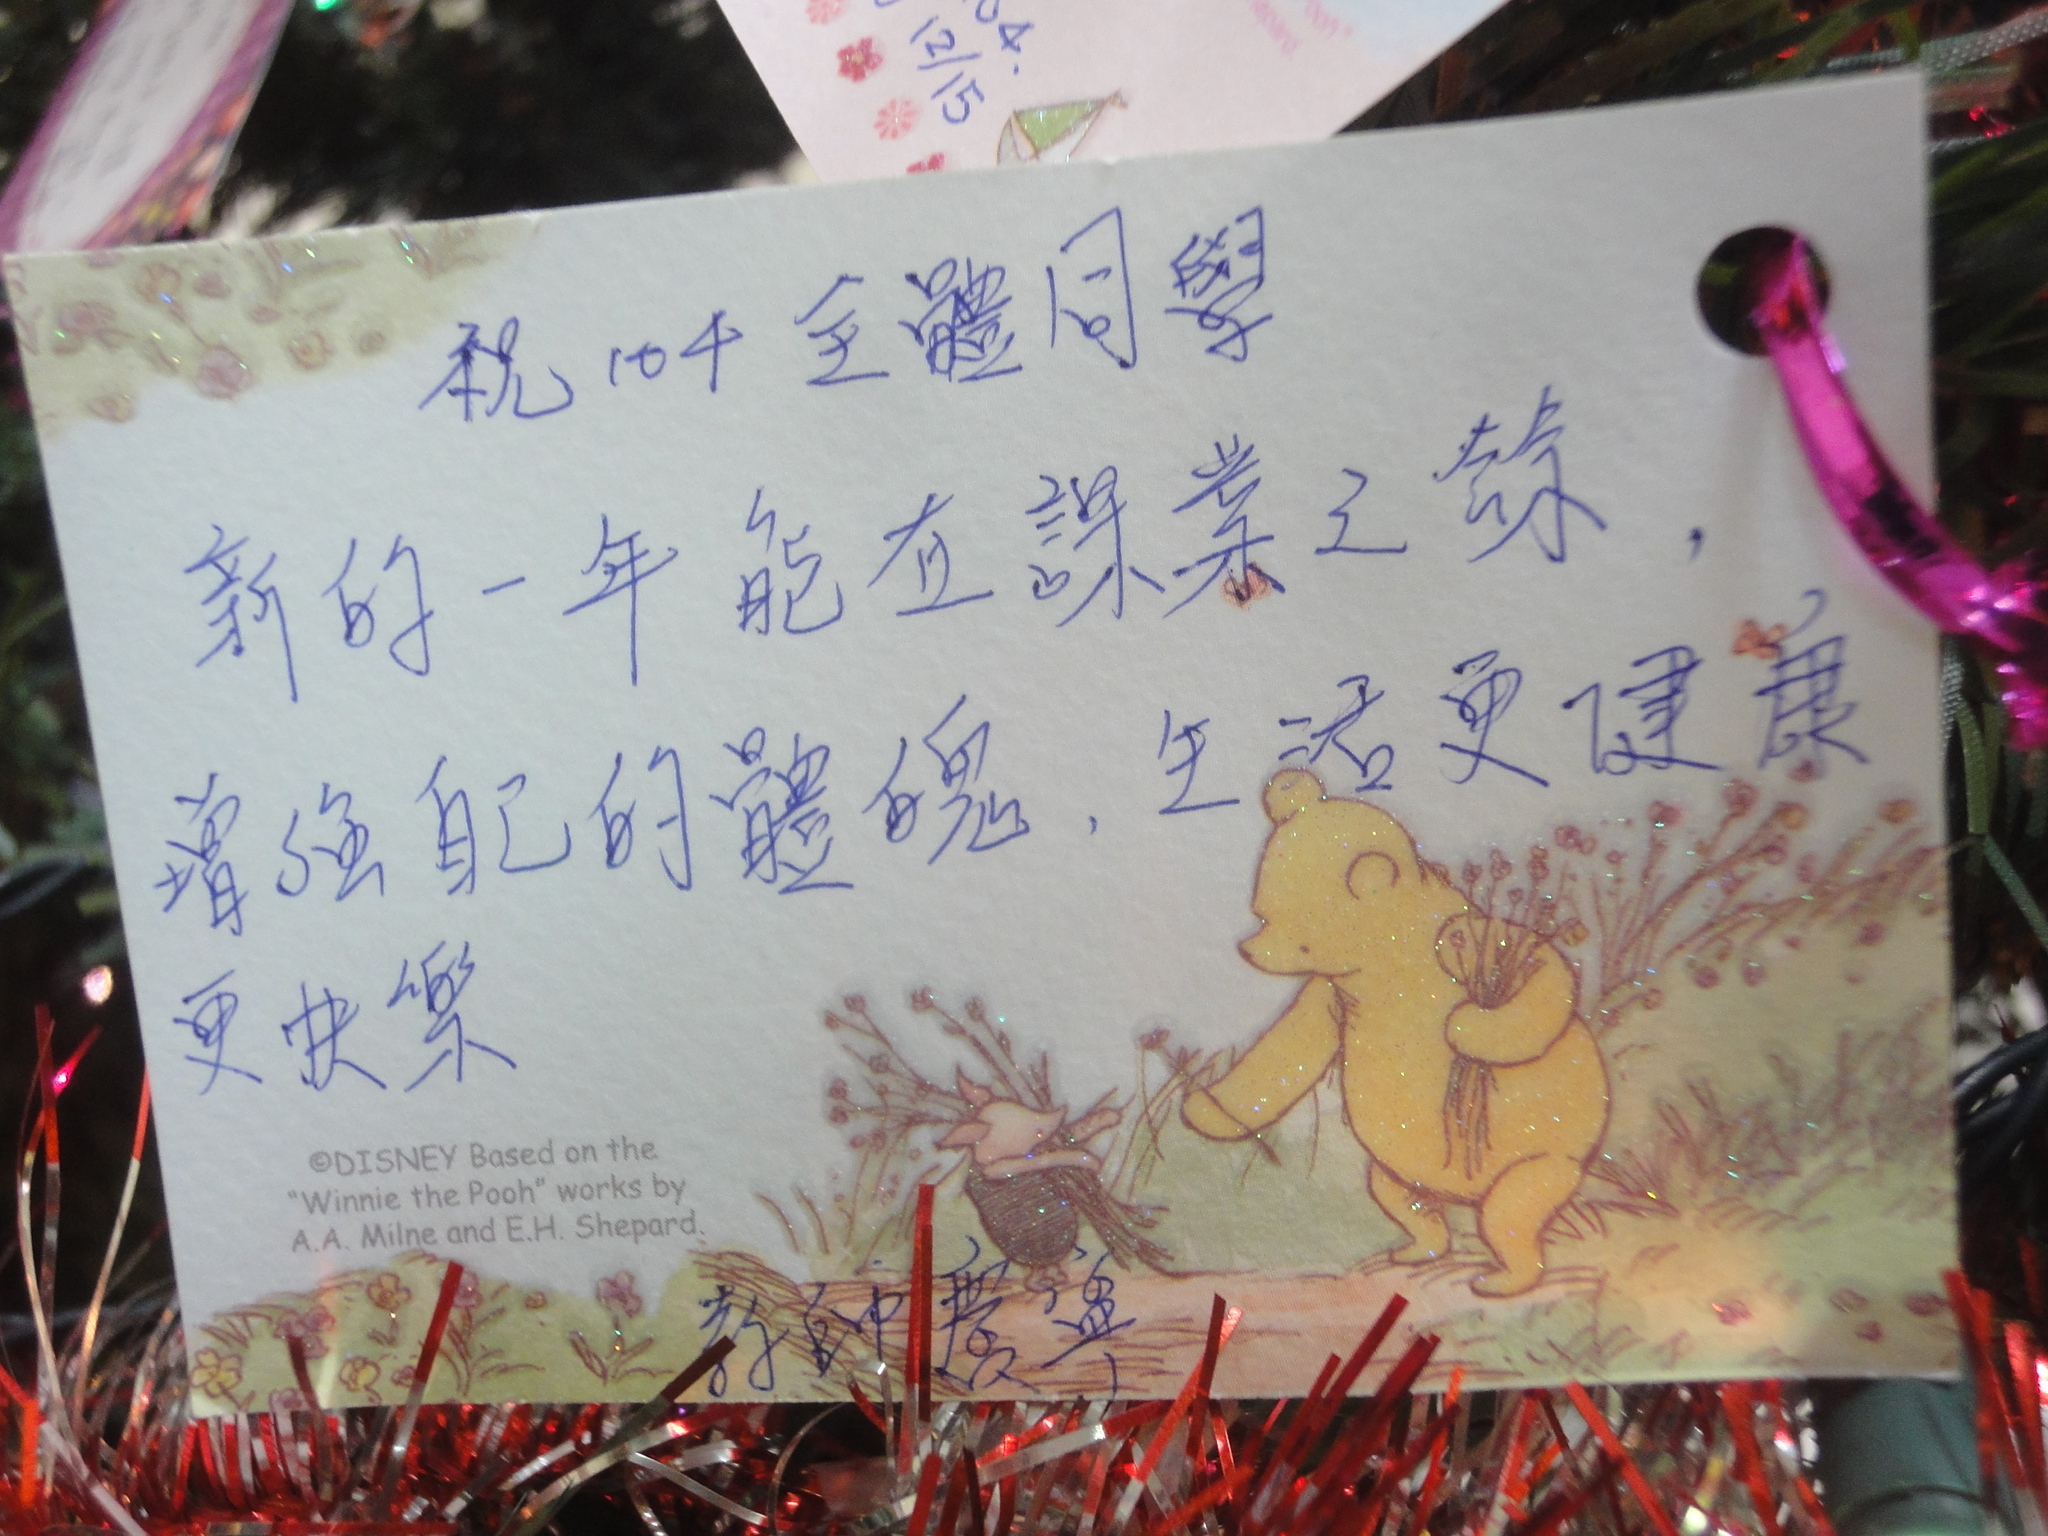 04.
12/15
祝104全體同學
新的一年能在課業之餘，
增強自己的體魄，生活更健康
更快樂
©DISNEY Based on the
"Winnie the Pooh" works by
A.A. Milne and E.H. Shepard.